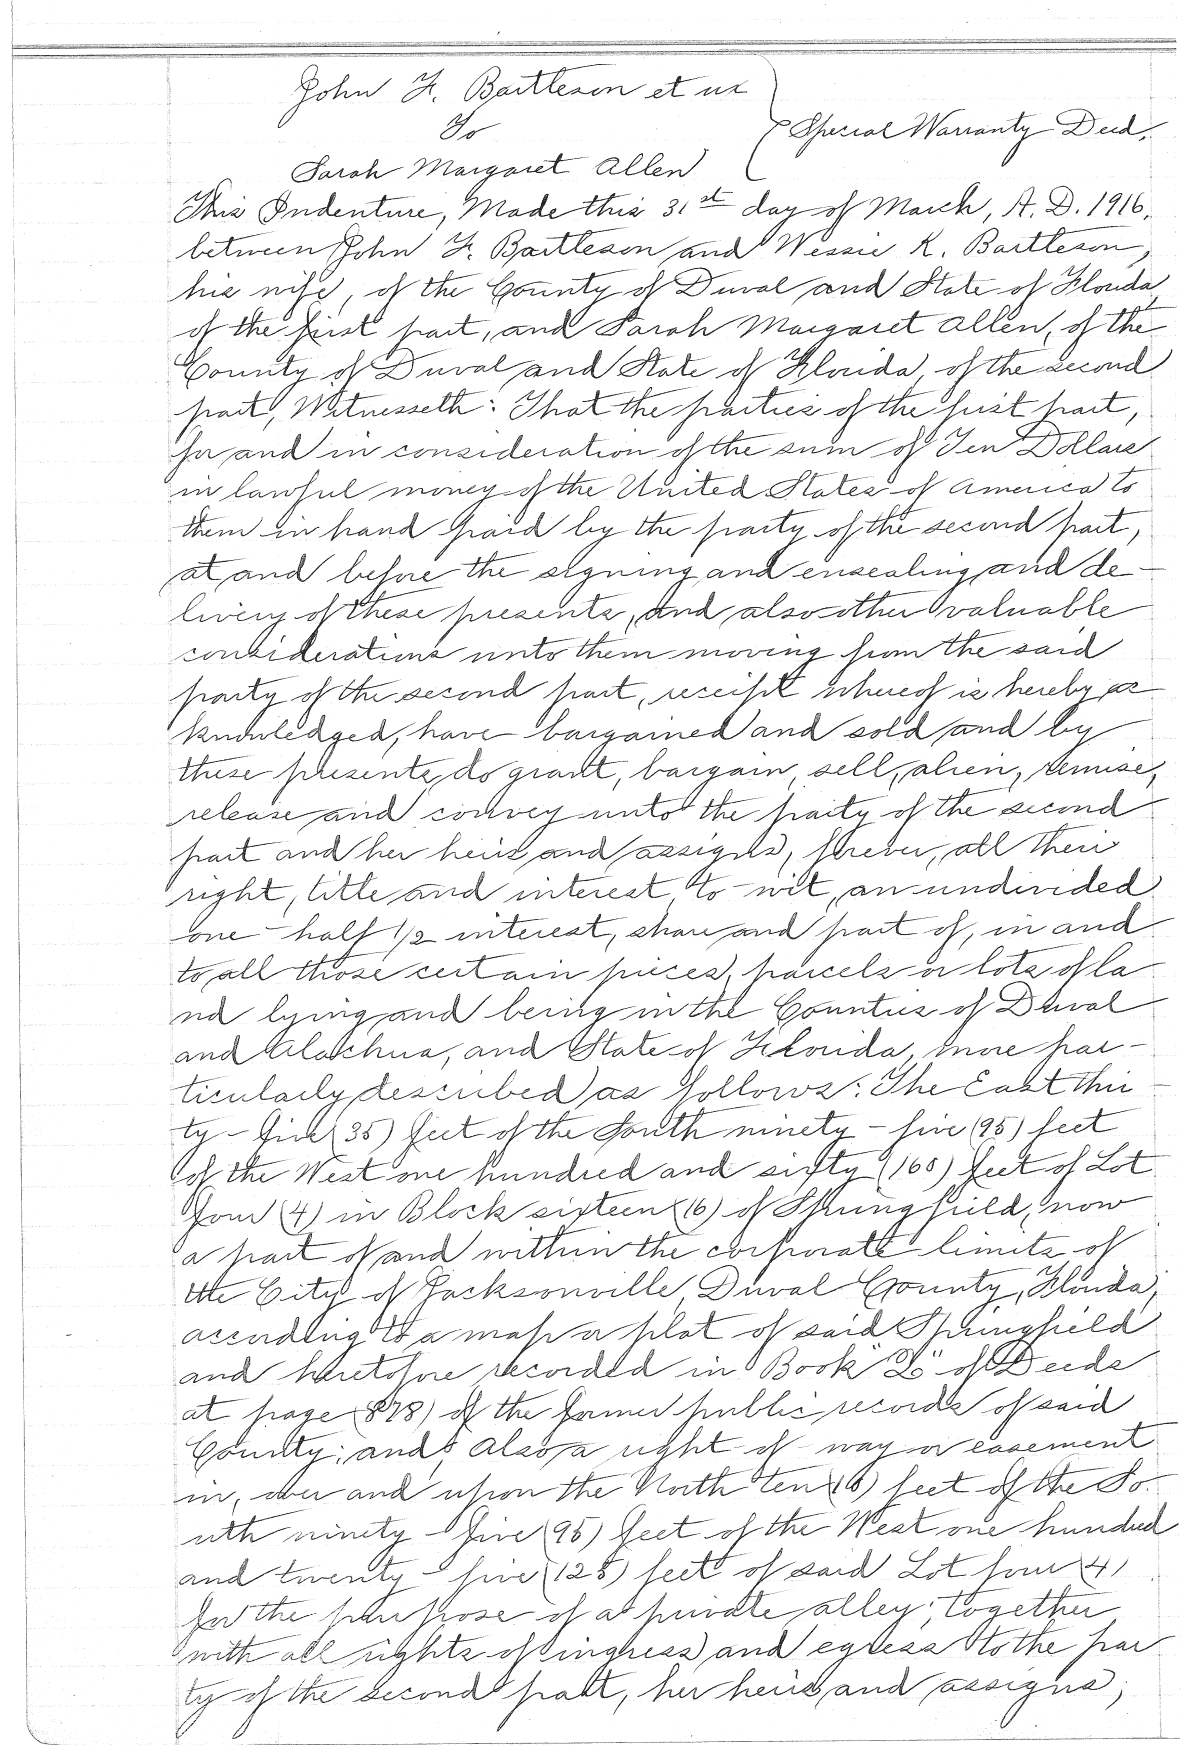 John F. Bartleson et ux
To
Special Warranty Deed.
Sarah Margaret Allen
This Indenture, Made this 31st day of March, A. D. 1916,
between John F. Bartleson and Wessie K. Bartleson,
his wife, of the County of Duval and State of Florida,
of the first part, and Sarah Margaret Allen, of the
County of Duval and State of Florida, of the second
part, Witnesseth: That the parties of the first part,
for and in consideration of the sum of Ten Dollars
in lawful money of the United States of America to
them in hand paid by the party of the second part,
at and before the signing and ensealing and de-
livery of these presents, and also other valuable
considerations unto them moving from the said
party of the second part, receipt whereof is hereby ac
knowledged, have bargained and sold and by
these presents, do grant, bargain, sell, alien, remise,
release and convey unto the party of the second
part and her heirs and assigns, forever, all their
right, title and interest, to-wit, an undivided
one-half 1/2 interest, share and part of, in and
to all those certain pieces, parcels or lots of la
nd lying and being in the Counties of Duval
and Alachua, and State of Florida, more par-
ticularly described as follows: The East thir-
ty-five (35) feet of the South ninety-five (95) feet
of the West one hundred and sixty (160) feet of Lot
four (4) in Block sixteen (16) of Springfield, now
a part of and within the corporate limits of
the City of Jacksonville, Duval County, Florida,
according to a map or plat of said Springfield
and heretofore recorded in Book " " of Deeds
at page (878) of the former public records of said
County; and; Also a right of way or easement
in, over and upon the North ten (10) feet of the So-
uth ninety-five (95) feet of the West one hundred
and twenty-five (125) feet of said Lot four (4)
for the purpose of a private alley; together
with all rights of ingress and egress to the par
ty of the second part, her heirs and assigns,